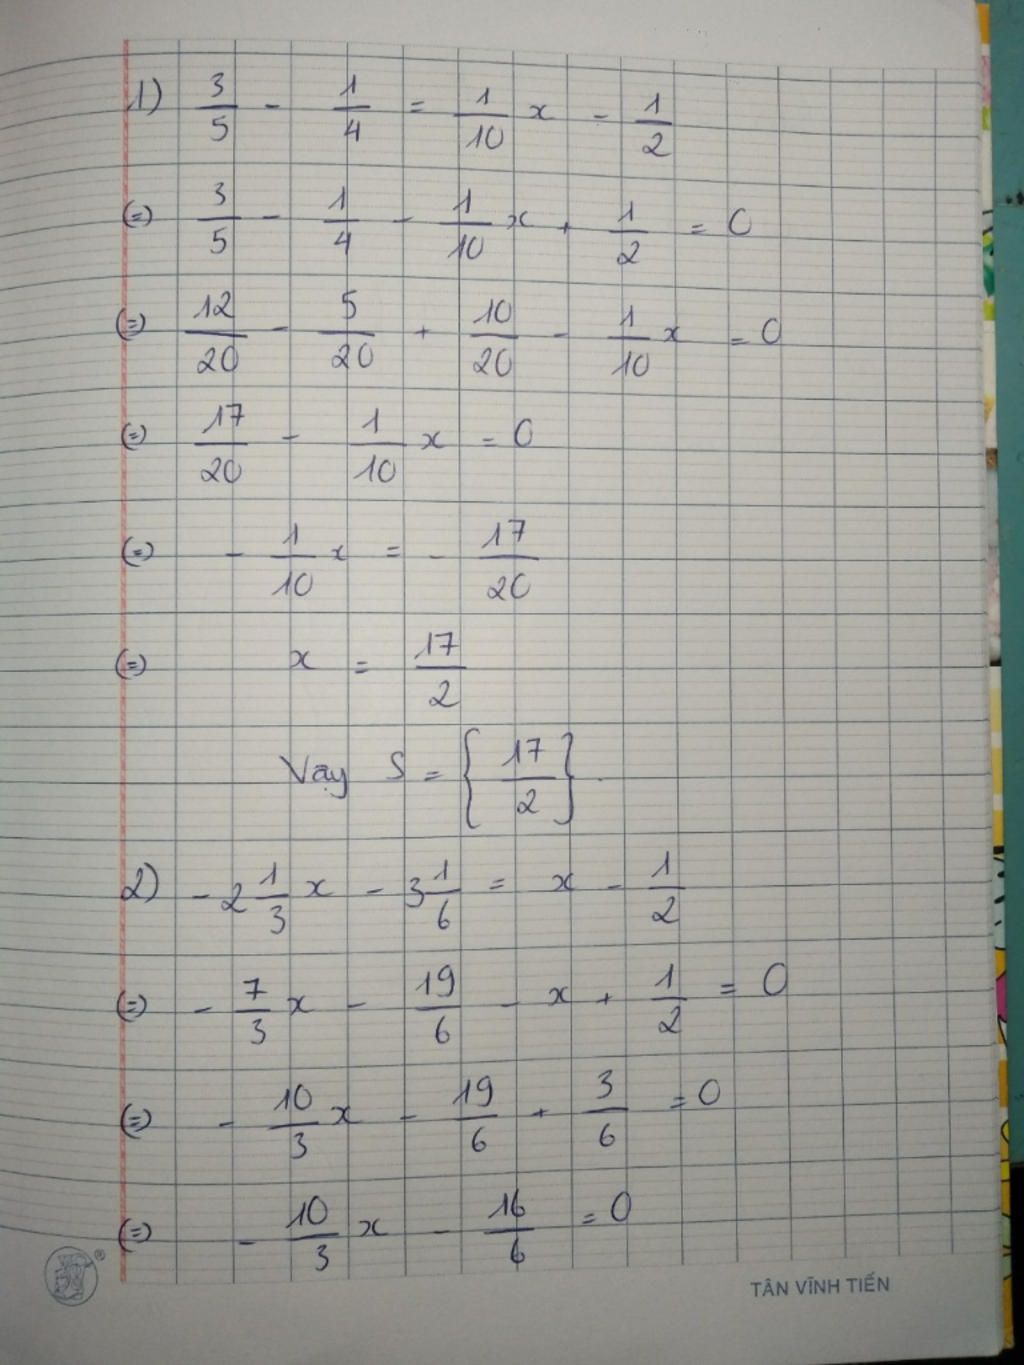 1) 3/5 - 1/4 = 1/10 x - 1/2
(=) 3/5 - 1/4 - 1/10 x + 1/2 = 0
(=) 12/20 - 5/20 + 10/20 - 1/10 x = 0
(=) 17/20 - 1/10 x = 0
(=) - 1/10 x = - 17/20
(=) x = 17/2
Vậy S = { 17/2 }
2) - 2 1/3 x - 3 1/6 = x - 1/2
(=) - 7/3 x - 19/6 - x + 1/2 = 0
(=) - 10/3 x - 19/6 + 3/6 = 0
(=) - 10/3 x - 16/6 = 0
®
TÂN VĨNH TIẾN